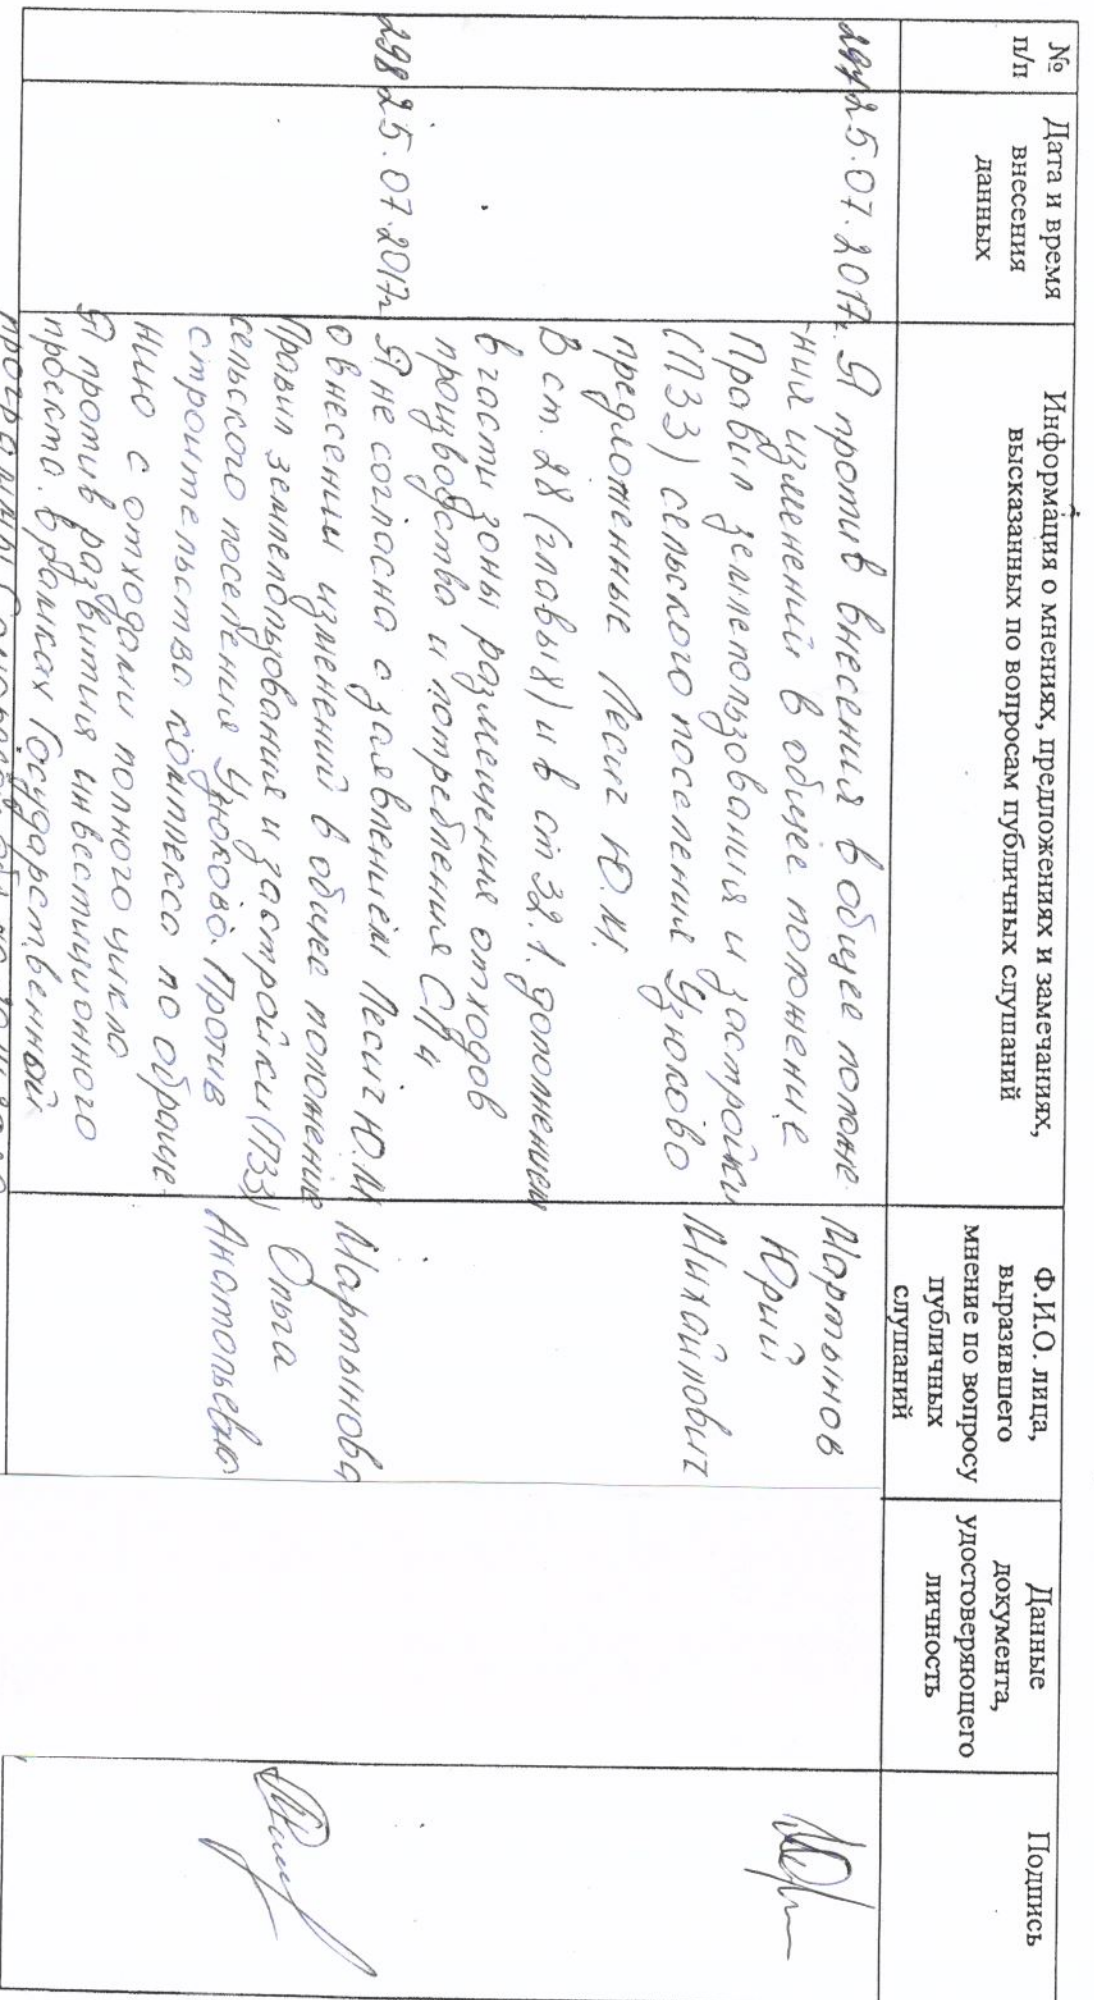 №
п/п
Дата и время
внесения
данных
Информация о мнениях, предложениях и замечаниях,
высказанных по вопросам публичных слушаний
Ф.И.О. лица,
выразившего
мнение по вопросу
публичных
слушаний
Данные
документа,
удостоверяющего
личность
Подпись
297 25.07.2017г. Я против внесения в общее положе-
ния изменений в общее положение
Правил землепользования и застройки
(ПЗЗ) сельского поселения Узюково
предложенные Лесиг Ю.М.
В ст. 28 (главы 8) и в ст 32.1. дополнением
в части зоны размещения отходов
производства и потребления СП4
Мартынов
Юрий
Михайлович
298 25.07.2017г Я не согласна с заявлением Лесиг Ю.М
о внесении изменений в общее положение
Правил землепользования и застройки (ПЗЗ)
сельского поселения Узюково. Против
строительства комплекса по обраще-
нию с отходами полного цикла
Я против развития инвестиционного
проекта. в рамках Государственный
Мартынова
Ольга
Анатольевна